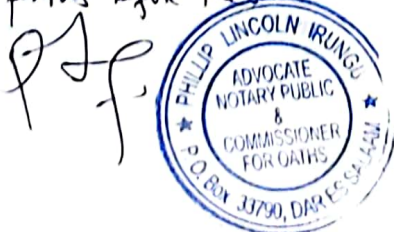 PHILLIP LINCOLN IRUNGU
ADVOCATE
NOTARY PUBLIC
&
COMMISSIONER
FOR OATHS
P.O. Box 33790, DAR ES SALAAM